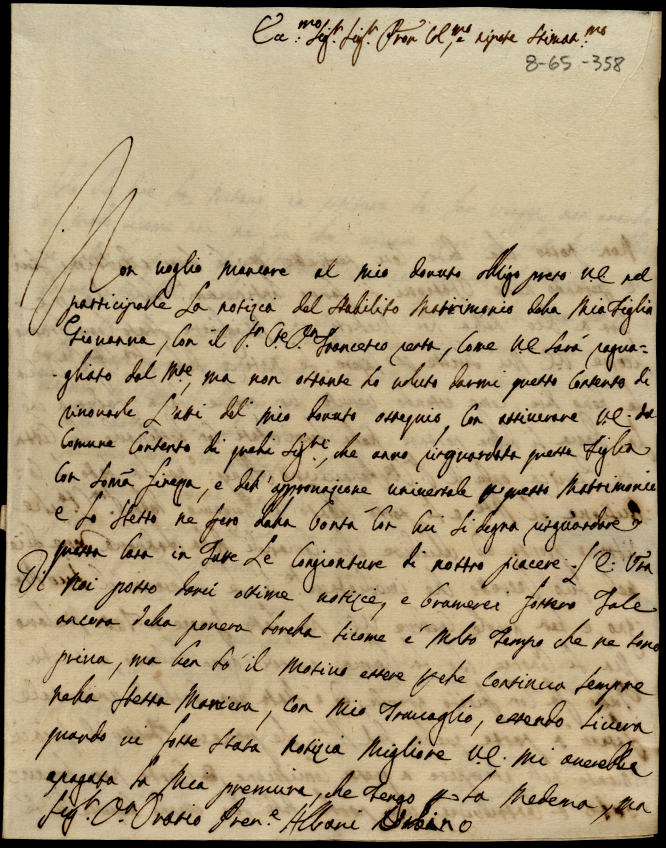 Ecc.mo Sig.r Sig.r Pron Col.mo e nipote Stimat.mo
8-65-358
Non voglio mancare al mio dovuto obligo preso V.E. nel
participarle La notizia del stabilito Matrimonio della Mia Figlia
Giovanna, con il S.r Cte D.n Francesco, come V.E. sarà ragua-
-gliato dal Mte, ma non ostante ho voluto darmi questo contento di
rinovarle L'atti del mio dovuto ossequio, con assicurare V.E. del
comune contento di questi Sig.ri, che anno risguardata questa Figlia
con somma, e dell'approvazione universale p questo Matrimonio
e Lo stesso ne spero dalla bontà con cui si degna risguardare
questa Casa in tutte Le Congionture di nostro piacere. S.E.
Di Noi posso darli ottime notizie, e bramerei fossero Tale
ancora della povera sorella sicome è Molto Tempo che ne sono
priva, ma ben so il Motivo essere p che continua sempre
nella stessa Maniera, con Mio Travaglio, essendo sicura
quando vi fosse stata notizia Migliore V.E. mi averebbe
apagata la Mia premura, che Tengo p La Medema, ma
Sig.r D.n Orazio Pren.e Albani Urbino